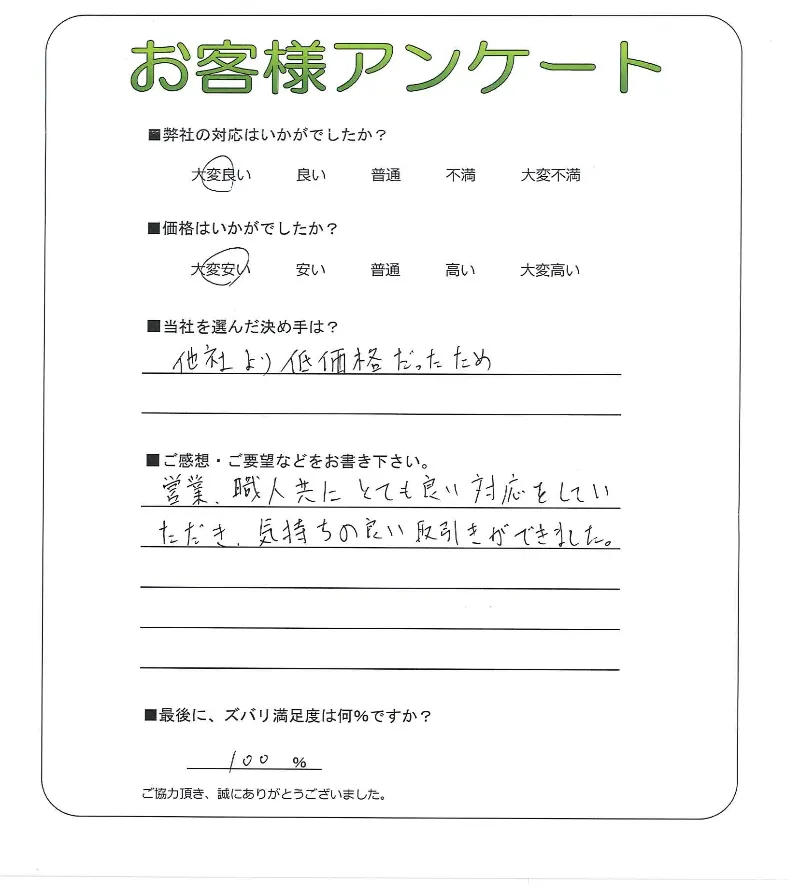 お客様アンケート
■弊社の対応はいかがでしたか？
大変良い 良い 普通 不満 大変不満
■価格はいかがでしたか？
大変安い 安い 普通 高い 大変高い
■当社を選んだ決め手は？
他社より低価格だったため
■ご感想・ご要望などをお書き下さい。
営業、職人共にとても良い対応をしてい
ただき、気持ちの良い取引きができました。
■最後に、ズバリ満足度は何％ですか？
100 %
ご協力頂き、誠にありがとうございました。